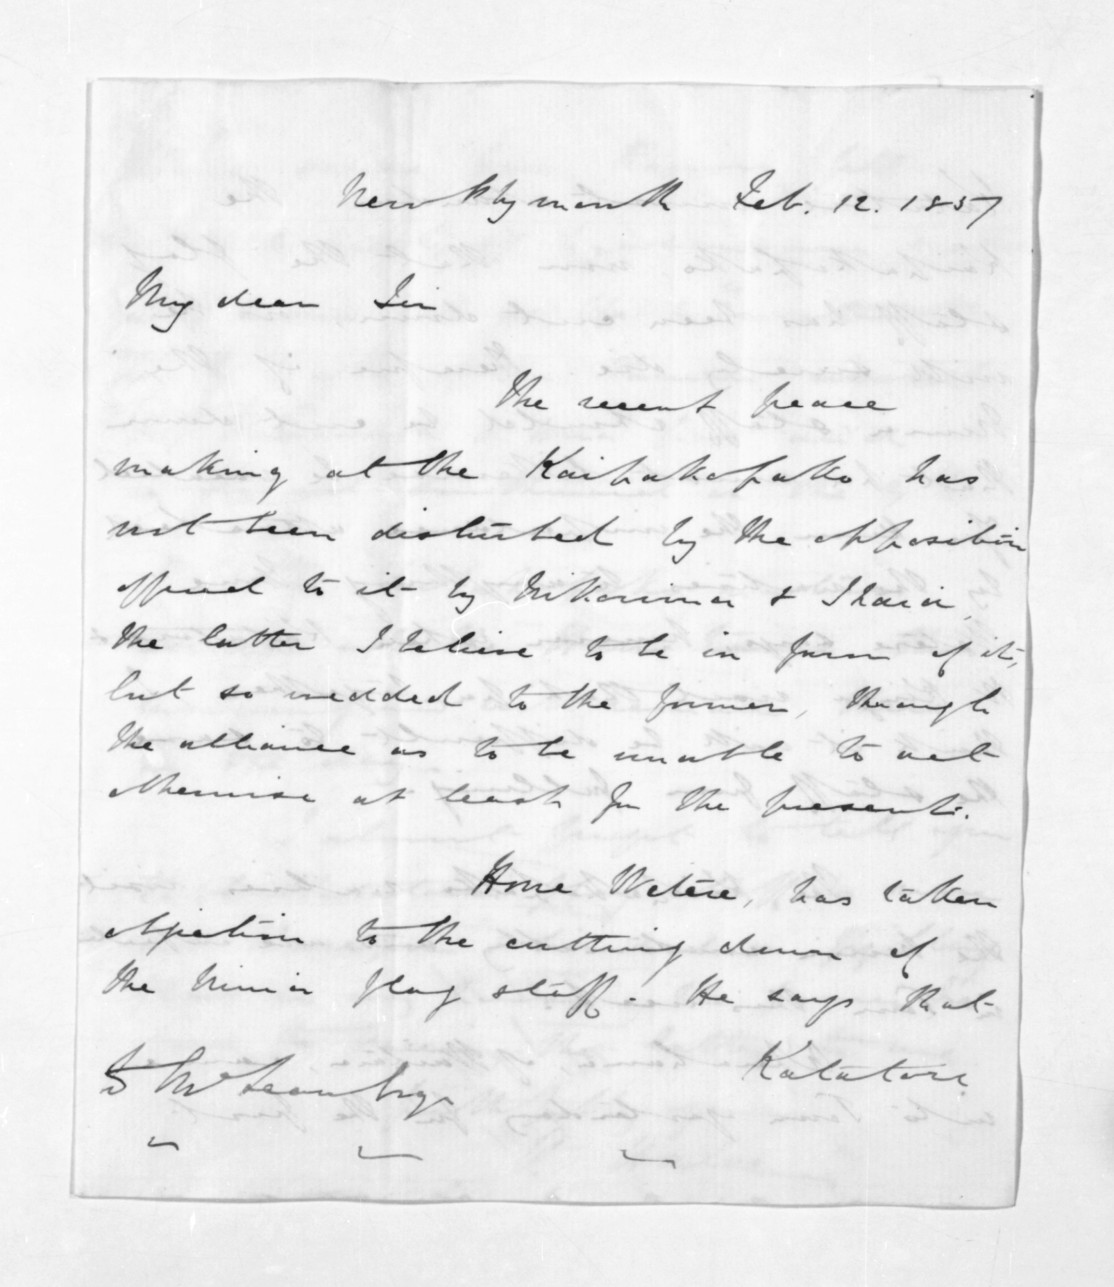 New Plymouth Feb. 12. 1857
My dear Sir
The recent peace
making at the Kaipakopako has
not been disturbed by the opposition
offered to it by Nikorima & Ihaia,
the latter I believe to be in favor of it,
but so wedded to the former, through
the alliance as to be unable to act
otherwise at least for the present.
Hone Wetere, has taken
objection to the cutting down of
the Ninia flag staff. He says that
Katatore
D McLean Esqr